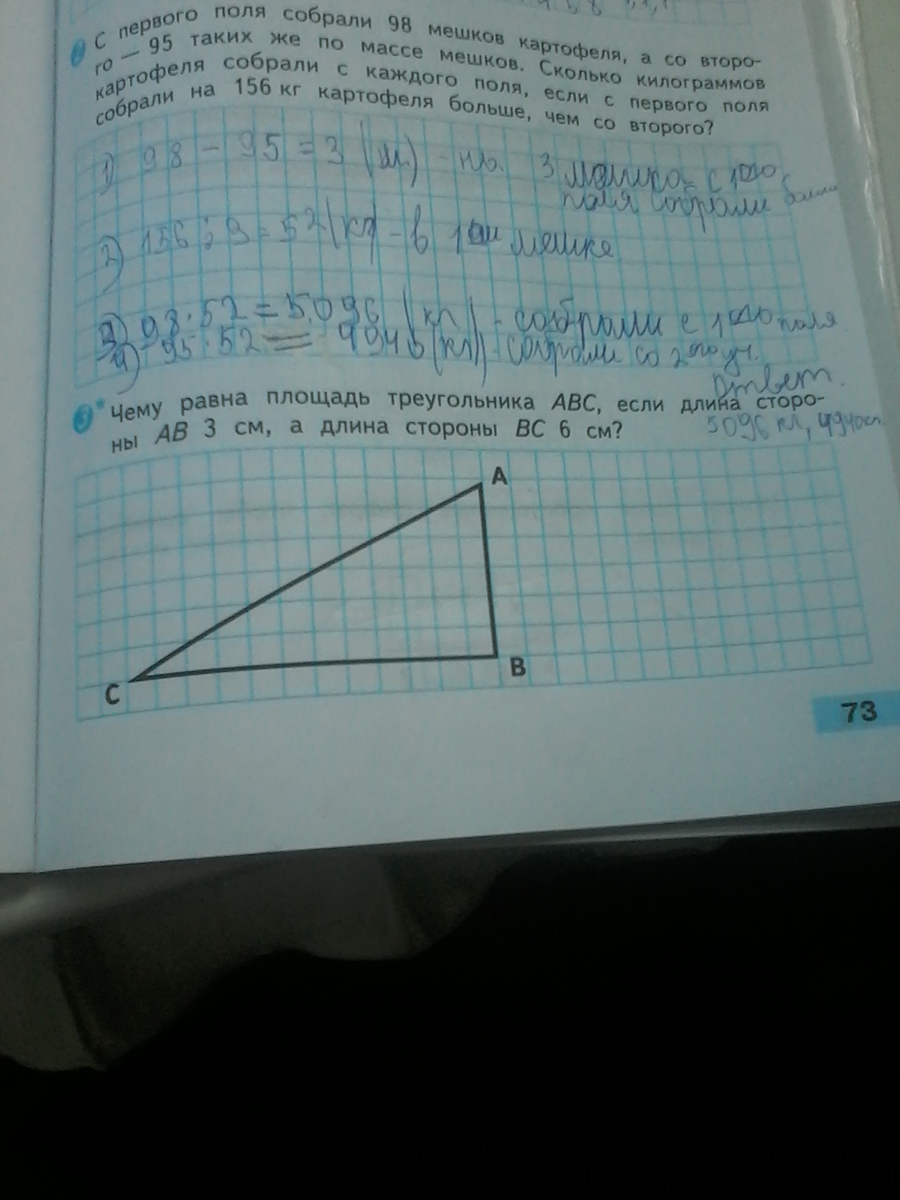 С первого поля собрали 98 мешков картофеля, а со второ-
го — 95 таких же по массе мешков. Сколько килограммов
картофеля собрали с каждого поля, если с первого поля
собрали на 156 кг картофеля больше, чем со второго?
1) 98 - 95 = 3 (м.) - на 3 мешка с 1ого
поля собрали
2) 156 : 3 = 52 (кг) - в 1ом мешке
3) 98 · 52 = 5096 (кг) - собрали с 1ого поля
4) 95 · 52 = 4940 (кг) - собрали со 2ого уч.
Ответ.
5096 кг, 4940 кг.
* Чему равна площадь треугольника ABC, если длина сторо-
ны AB 3 см, а длина стороны BC 6 см?
A
B
C
73